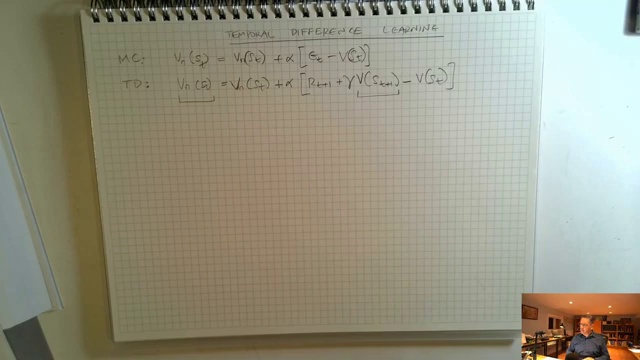 TEMPORAL DIFFERENCE LEARNING
MC: Vπ(St) = Vπ(St) + α [Gt − V(St)]
TD: Vπ(St) = Vπ(St) + α [Rt+1 + γ V(St+1) − V(St)]